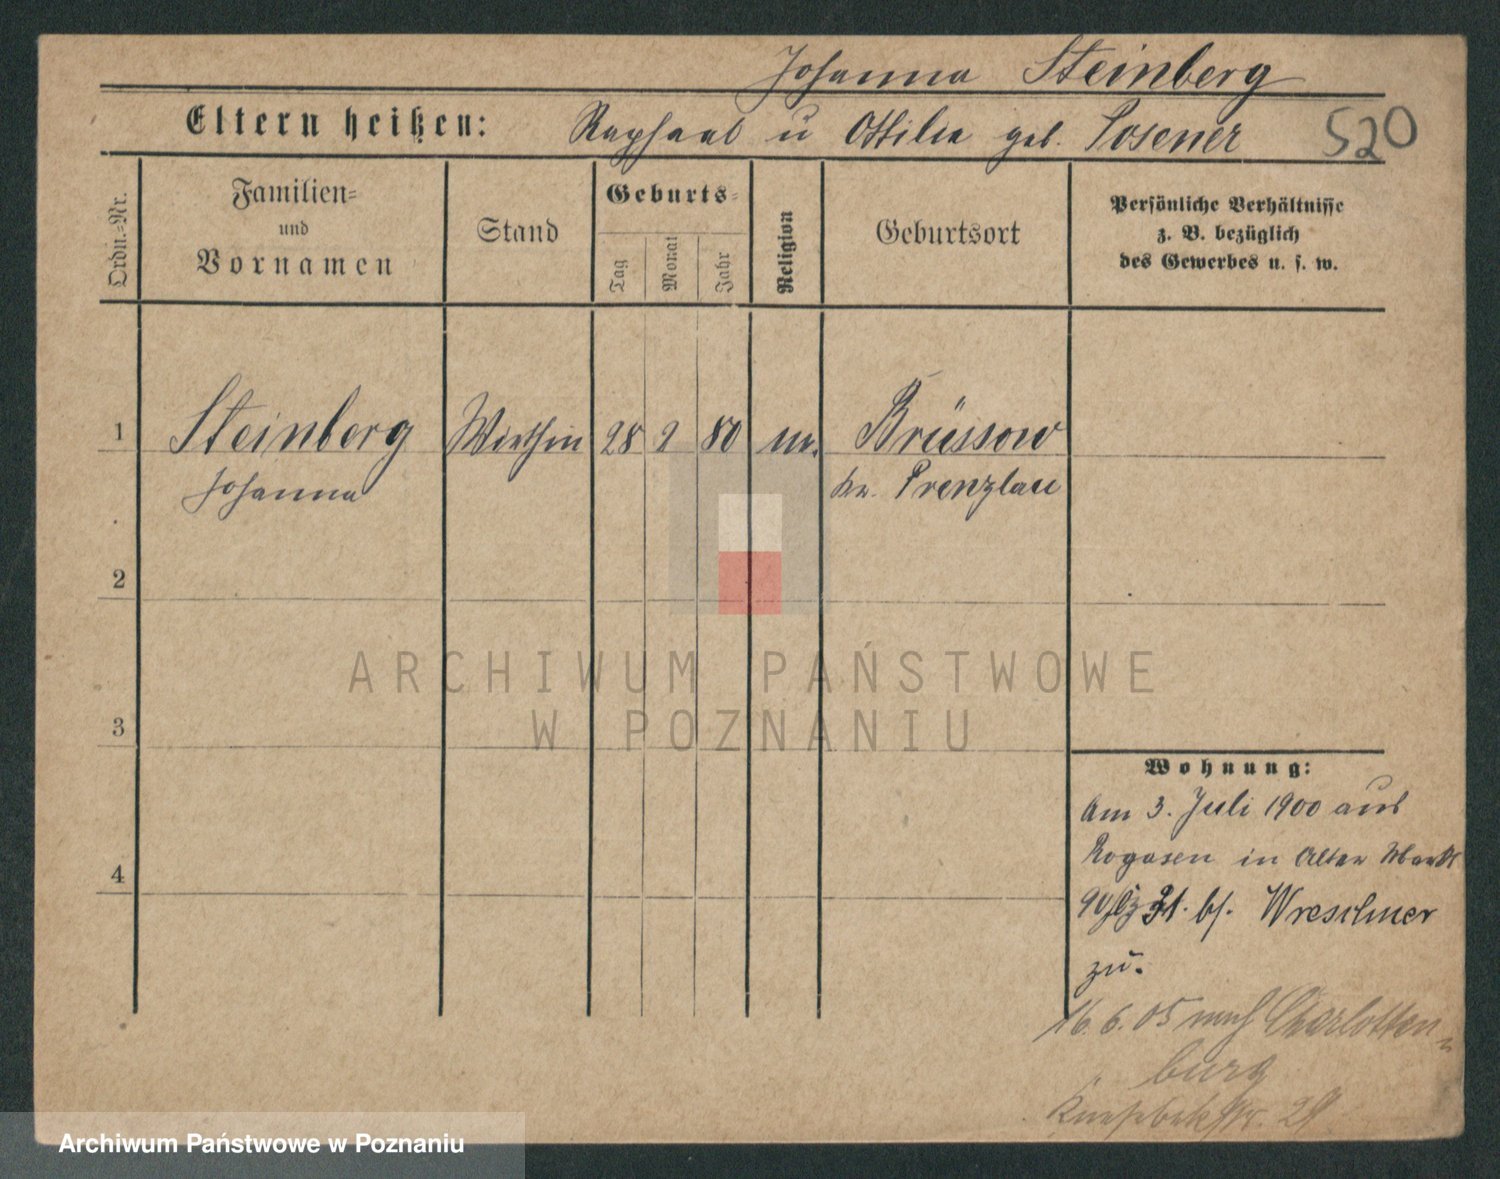 Johanna Steinberg
Eltern heißen: Raphael u Ottilie geb. Posener 520
Ordn.-Nr.
Familien-
und
Vornamen
Stand
Geburts-
Tag
Monat
Jahr
Religion
Geburtsort
Persönliche Verhältnisse
z. B. bezüglich
des Gewerbes u. s. w.
1 Steinberg 28 2 80 m. Brüssow
Johanna Kr. Prenzlau
2
3
4
Wohnung:
Am 3. Juli 1900 aus
Rogasen in Alter Markt
90 bf. Wreschner
zu.
16. 6. 05 nach Charlotten-
burg
29
ARCHIWUM PAŃSTWOWE
W POZNANIU
Archiwum Państwowe w Poznaniu